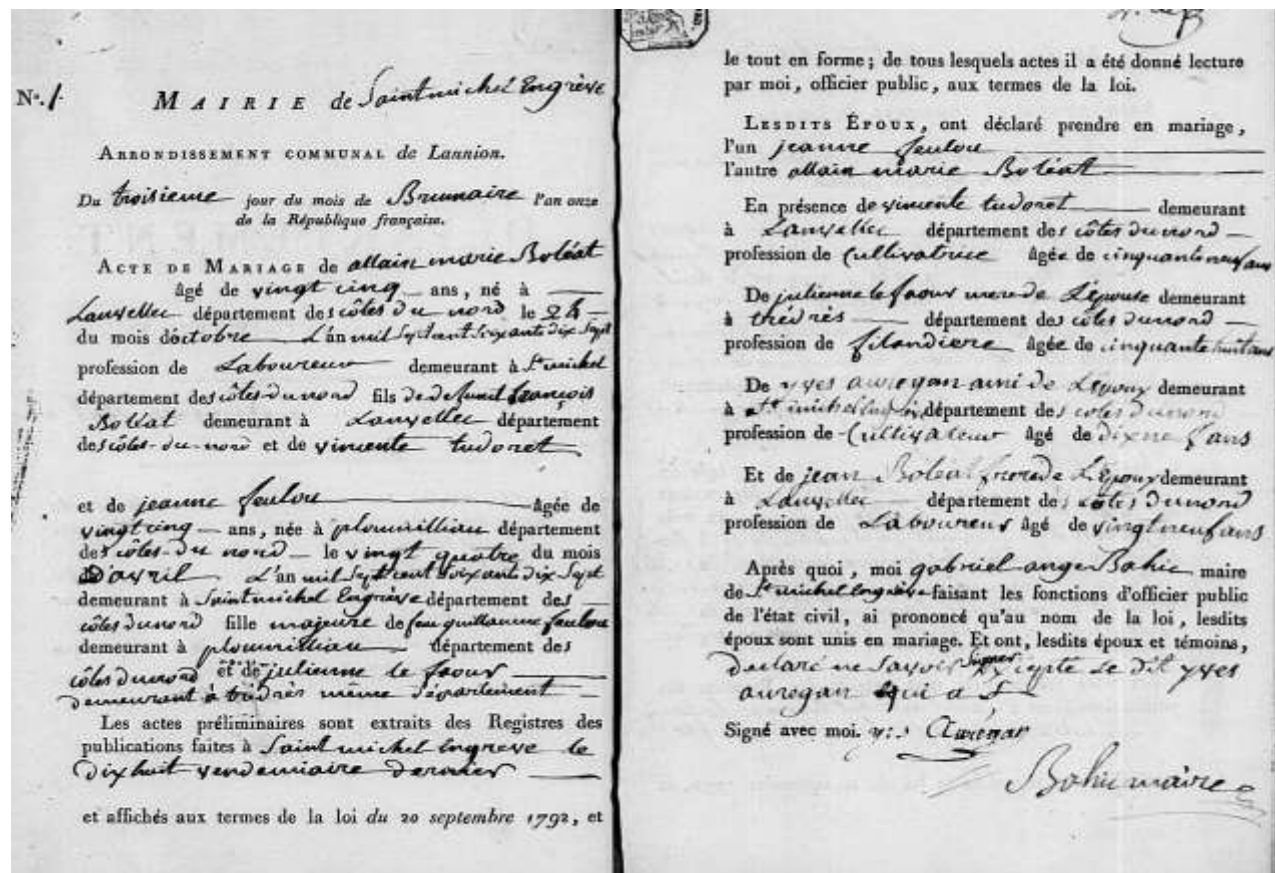 N°. 1.
MAIRIE de Saint michel Engrève
ARRONDISSEMENT COMMUNAL de Lannion.
Du troisieme jour du mois de Brumaire l'an onze
de la République française.
ACTE DE MARIAGE de allain marie Boléat
âgé de vingt cinq ans, né à
Lanvellec département des côtes du nord le 24
du mois d'octobre L'an mil sept cent soixante dix sept
profession de Laboureur demeurant à St michel
département des côtes-du-nord fils de defunt françois
Boléat demeurant à Lanvellec département
des côtes-du-nord et de vincente tudoret
et de jeanne feulou âgée de
vingt cinq ans, née à ploumilliau département
des côtes-du nord le vingt quatre du mois
D'avril L'an mil Sept cent soixante dix Sept
demeurant à Saint michel Engrève département des
côtes du nord fille majeure de feu guillaume feulou
demeurant à ploumilliau département des
côtes du nord et de julienne le faour
demeurant à trédrès même département
Les actes préliminaires sont extraits des Registres des
publications faites à Saint michel Engrève le
dix huit vendemiaire dernier
et affichés aux termes de la loi du 20 septembre 1792, et
le tout en forme ; de tous lesquels actes il a été donné lecture
par moi, officier public, aux termes de la loi.
LESDITS ÉPOUX, ont déclaré prendre en mariage,
l'un jeanne feulou
l'autre allain marie Boléat
En présence de vincente tudoret demeurant
à Lanvellec département des côtes du nord
profession de Cultivatrice âgée de cinquante neuf ans
De julienne le faour mere de L'épouse demeurant
à trédrès département des côtes du nord
profession de filandiere âgée de cinquante huit ans
De yves auregan ami de L'époux demeurant
à St michel département des côtes du nord
profession de Cultivateur âgé de dix neuf ans
Et de jean Boléat frere de L'époux demeurant
à Lanvellec département des côtes du nord
profession de Laboureur âgé de vingt neuf ans
Après quoi, moi gabriel ange Bahic maire
de St michel Engrève faisant les fonctions d'officier public
de l'état civil, ai prononcé qu'au nom de la loi, lesdits
époux sont unis en mariage. Et ont, lesdits époux et témoins,
declaré ne Savoir Signer Excepte Le dit yves
auregan qui a S
Signé avec moi. y.s Aurégan
Bahic maire